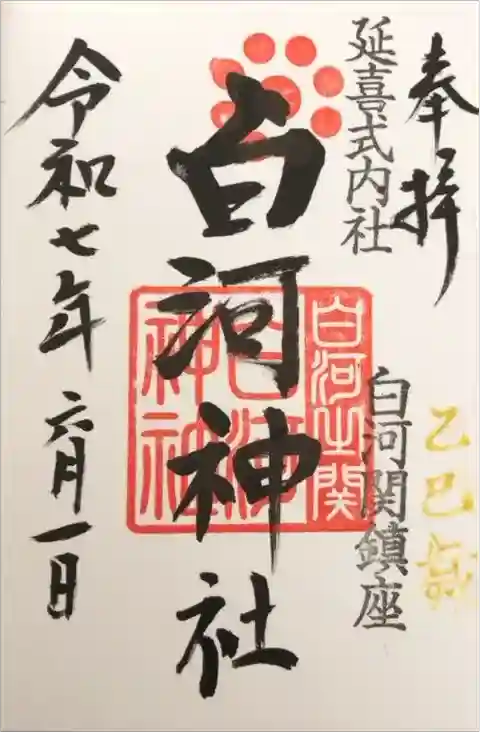 奉拝
乙巳歳
延喜式内社
白河関鎮座
白河神社
白河之関
白河
神社
令和七年六月一日